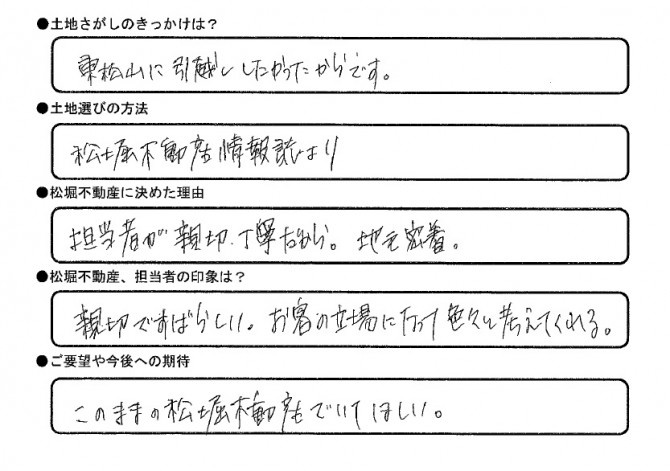 ●土地さがしのきっかけは？
東松山に引越ししたかったからです。
●土地選びの方法
松堀不動産情報誌より
●松堀不動産に決めた理由
担当者が親切、丁寧だから。地元密着。
●松堀不動産、担当者の印象は？
親切ですばらしい。お客の立場になって色々と考えてくれる。
●ご要望や今後への期待
このままの松堀不動産でいてほしい。